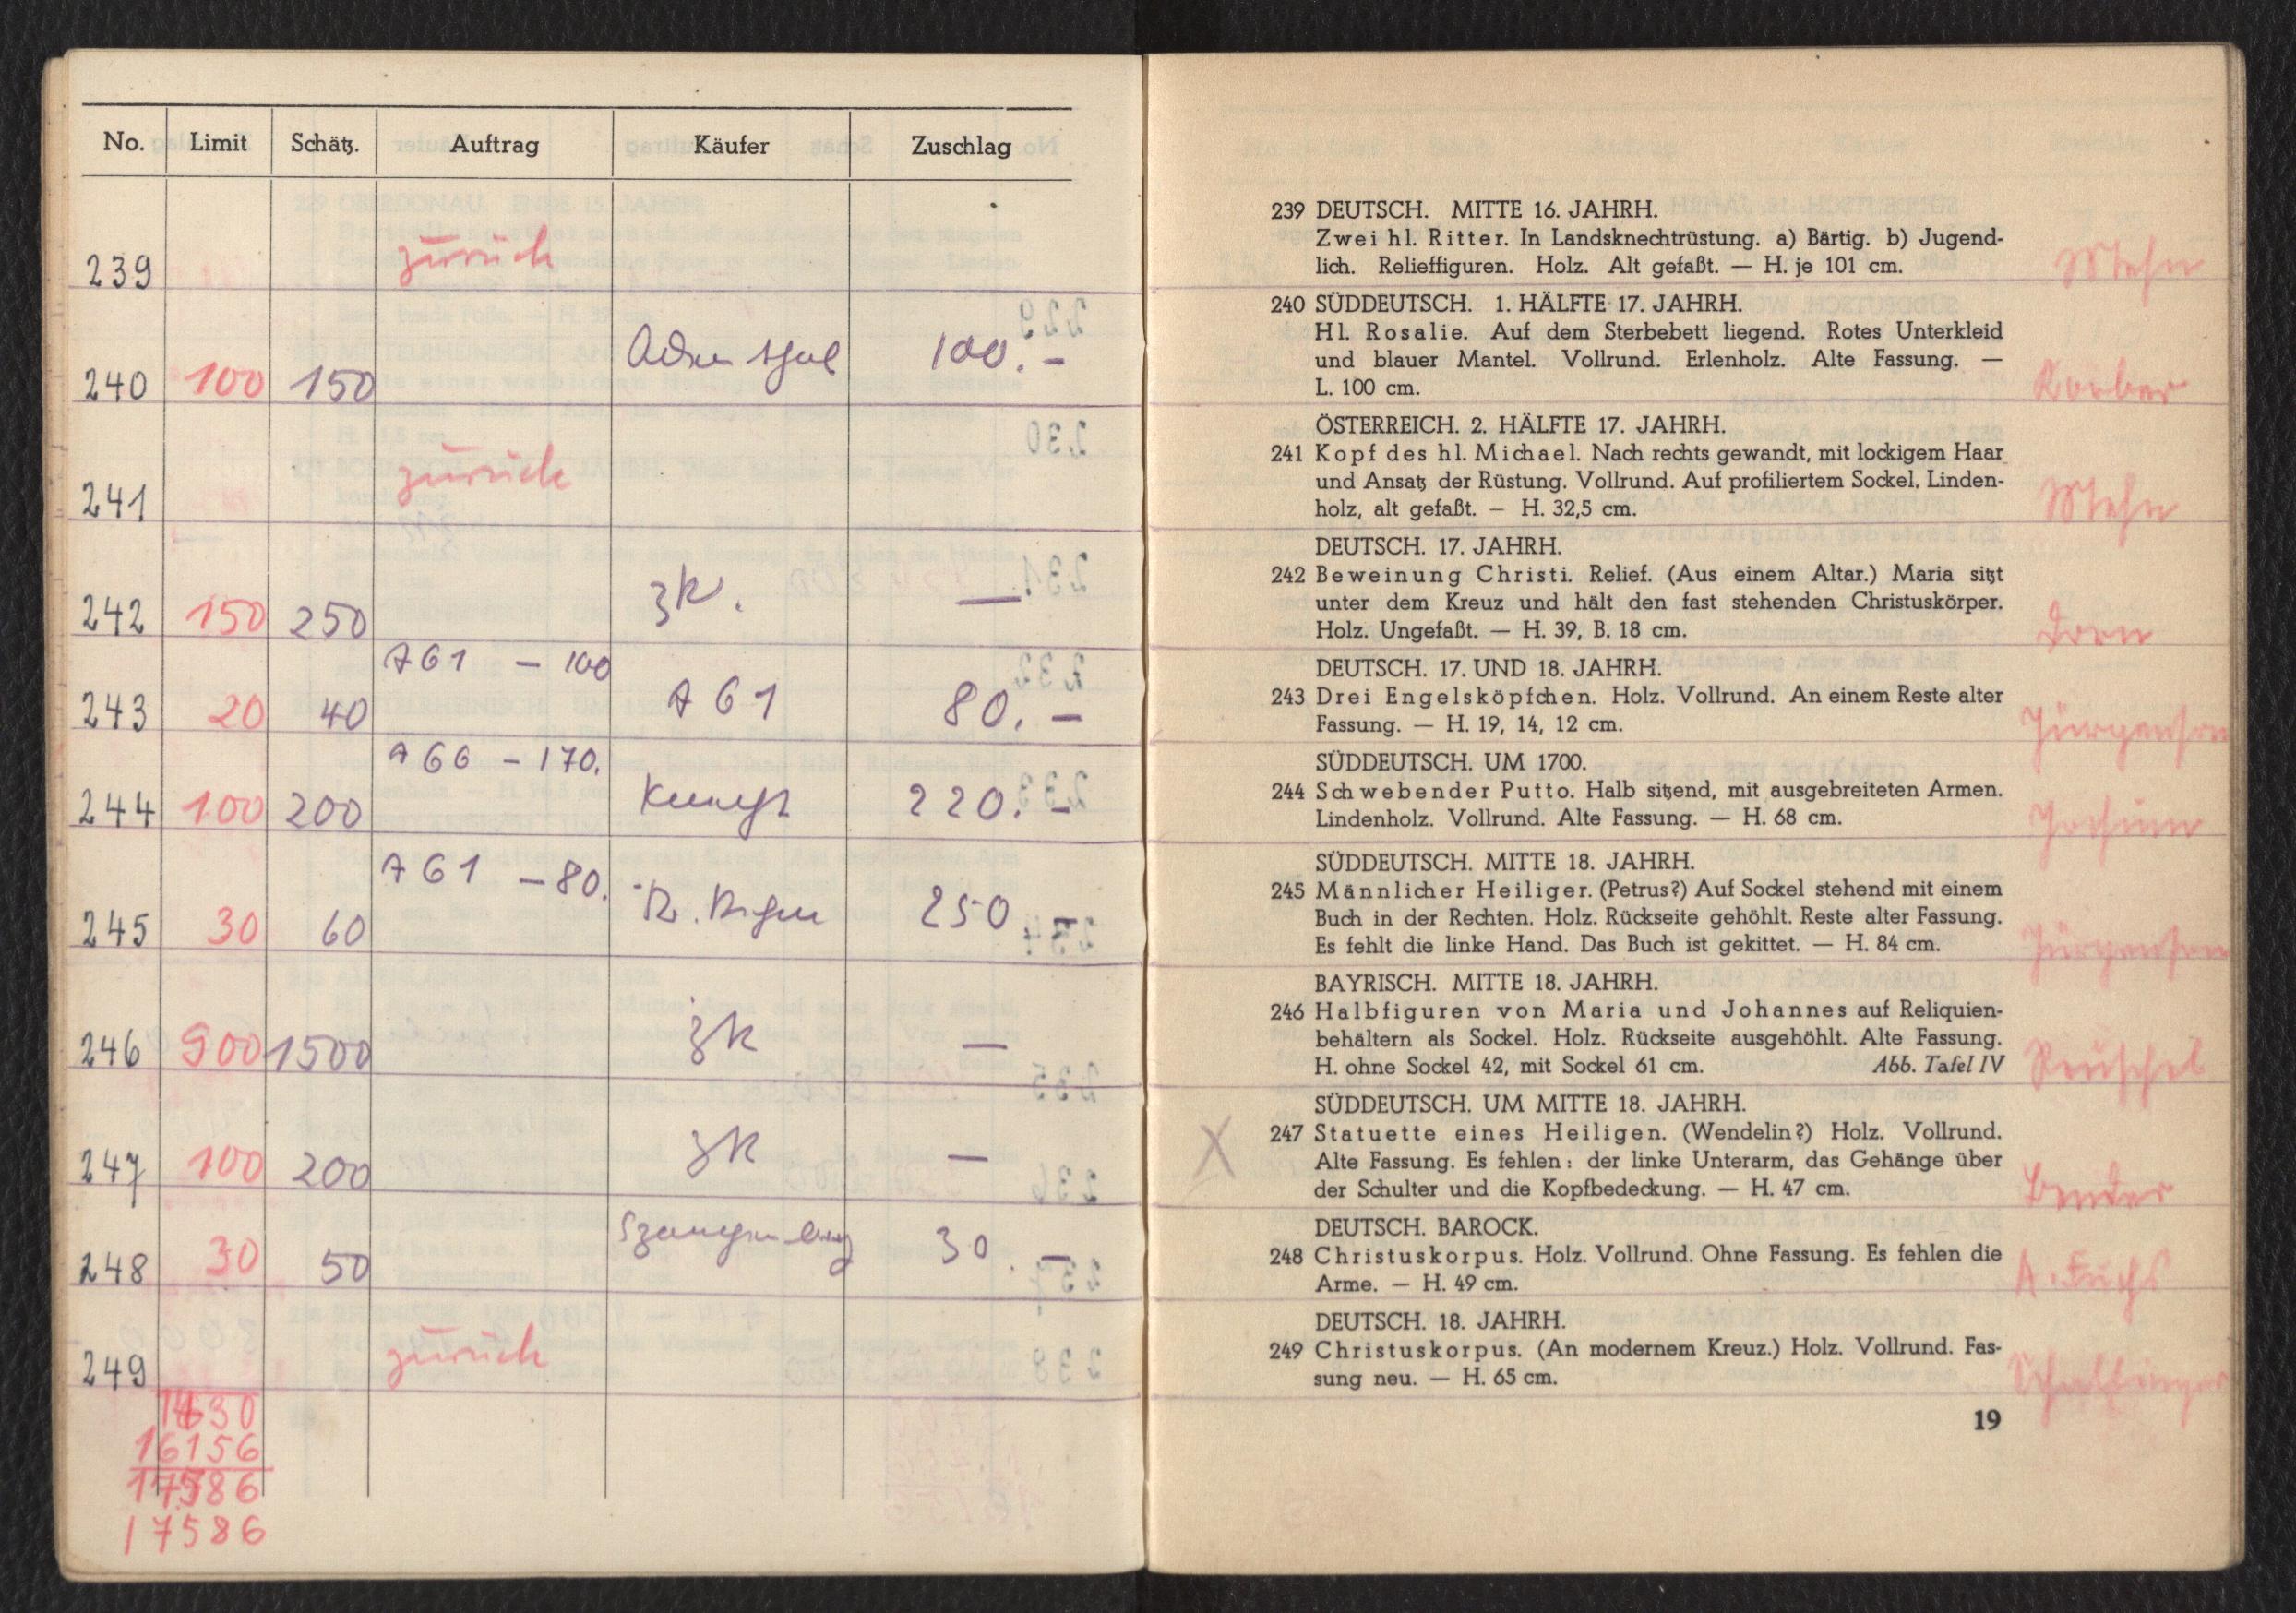 No. Limit Schätz. Auftrag Käufer Zuschlag
239 zurück
240 100 150 100.–
241 zurück
242 150 250 zk. —
A61 – 100
243 20 40 A61 80.–
A66 – 170.
244 100 200 220.–
A61 – 80.
245 30 60 250.–
246 900 1500 zk —
247 100 200 zk —
248 30 50 30.–
249 zurück
1430
16156
17586
17586
239 DEUTSCH. MITTE 16. JAHRH.
Zwei hl. Ritter. In Landsknechtrüstung. a) Bärtig. b) Jugend-
lich. Relieffiguren. Holz. Alt gefaßt. — H. je 101 cm.
240 SÜDDEUTSCH. 1. HÄLFTE 17. JAHRH.
Hl. Rosalie. Auf dem Sterbebett liegend. Rotes Unterkleid
und blauer Mantel. Vollrund. Erlenholz. Alte Fassung. —
L. 100 cm.
ÖSTERREICH. 2. HÄLFTE 17. JAHRH.
241 Kopf des hl. Michael. Nach rechts gewandt, mit lockigem Haar
und Ansatz der Rüstung. Vollrund. Auf profiliertem Sockel, Linden-
holz, alt gefaßt. — H. 32,5 cm.
DEUTSCH. 17. JAHRH.
242 Beweinung Christi. Relief. (Aus einem Altar.) Maria sitzt
unter dem Kreuz und hält den fast stehenden Christuskörper.
Holz. Ungefaßt. — H. 39, B. 18 cm.
Dorn
DEUTSCH. 17. UND 18. JAHRH.
243 Drei Engelsköpfchen. Holz. Vollrund. An einem Reste alter
Fassung. — H. 19, 14, 12 cm.
Jürgensen
SÜDDEUTSCH. UM 1700.
244 Schwebender Putto. Halb sitzend, mit ausgebreiteten Armen.
Lindenholz. Vollrund. Alte Fassung. — H. 68 cm.
Jochim
SÜDDEUTSCH. MITTE 18. JAHRH.
245 Männlicher Heiliger. (Petrus?) Auf Sockel stehend mit einem
Buch in der Rechten. Holz. Rückseite gehöhlt. Reste alter Fassung.
Es fehlt die linke Hand. Das Buch ist gekittet. — H. 84 cm.
Jürgensen
BAYRISCH. MITTE 18. JAHRH.
246 Halbfiguren von Maria und Johannes auf Reliquien-
behältern als Sockel. Holz. Rückseite ausgehöhlt. Alte Fassung.
H. ohne Sockel 42, mit Sockel 61 cm. Abb. Tafel IV
Reuschel
SÜDDEUTSCH. UM MITTE 18. JAHRH.
X 247 Statuette eines Heiligen. (Wendelin?) Holz. Vollrund.
Alte Fassung. Es fehlen: der linke Unterarm, das Gehänge über
der Schulter und die Kopfbedeckung. — H. 47 cm.
Bender
DEUTSCH. BAROCK.
248 Christuskorpus. Holz. Vollrund. Ohne Fassung. Es fehlen die
Arme. — H. 49 cm.
A. Fuchs
DEUTSCH. 18. JAHRH.
249 Christuskorpus. (An modernem Kreuz.) Holz. Vollrund. Fas-
sung neu. — H. 65 cm.
19